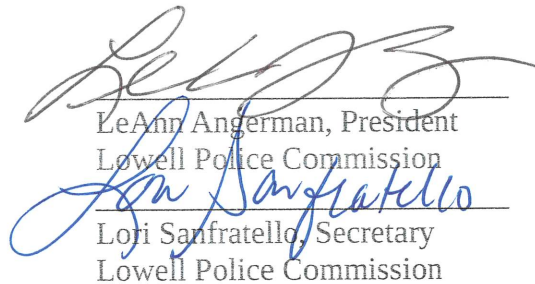 LeAnn Angerman, President
Lowell Police Commission
Lori Sanfratello
Lori Sanfratello, Secretary
Lowell Police Commission